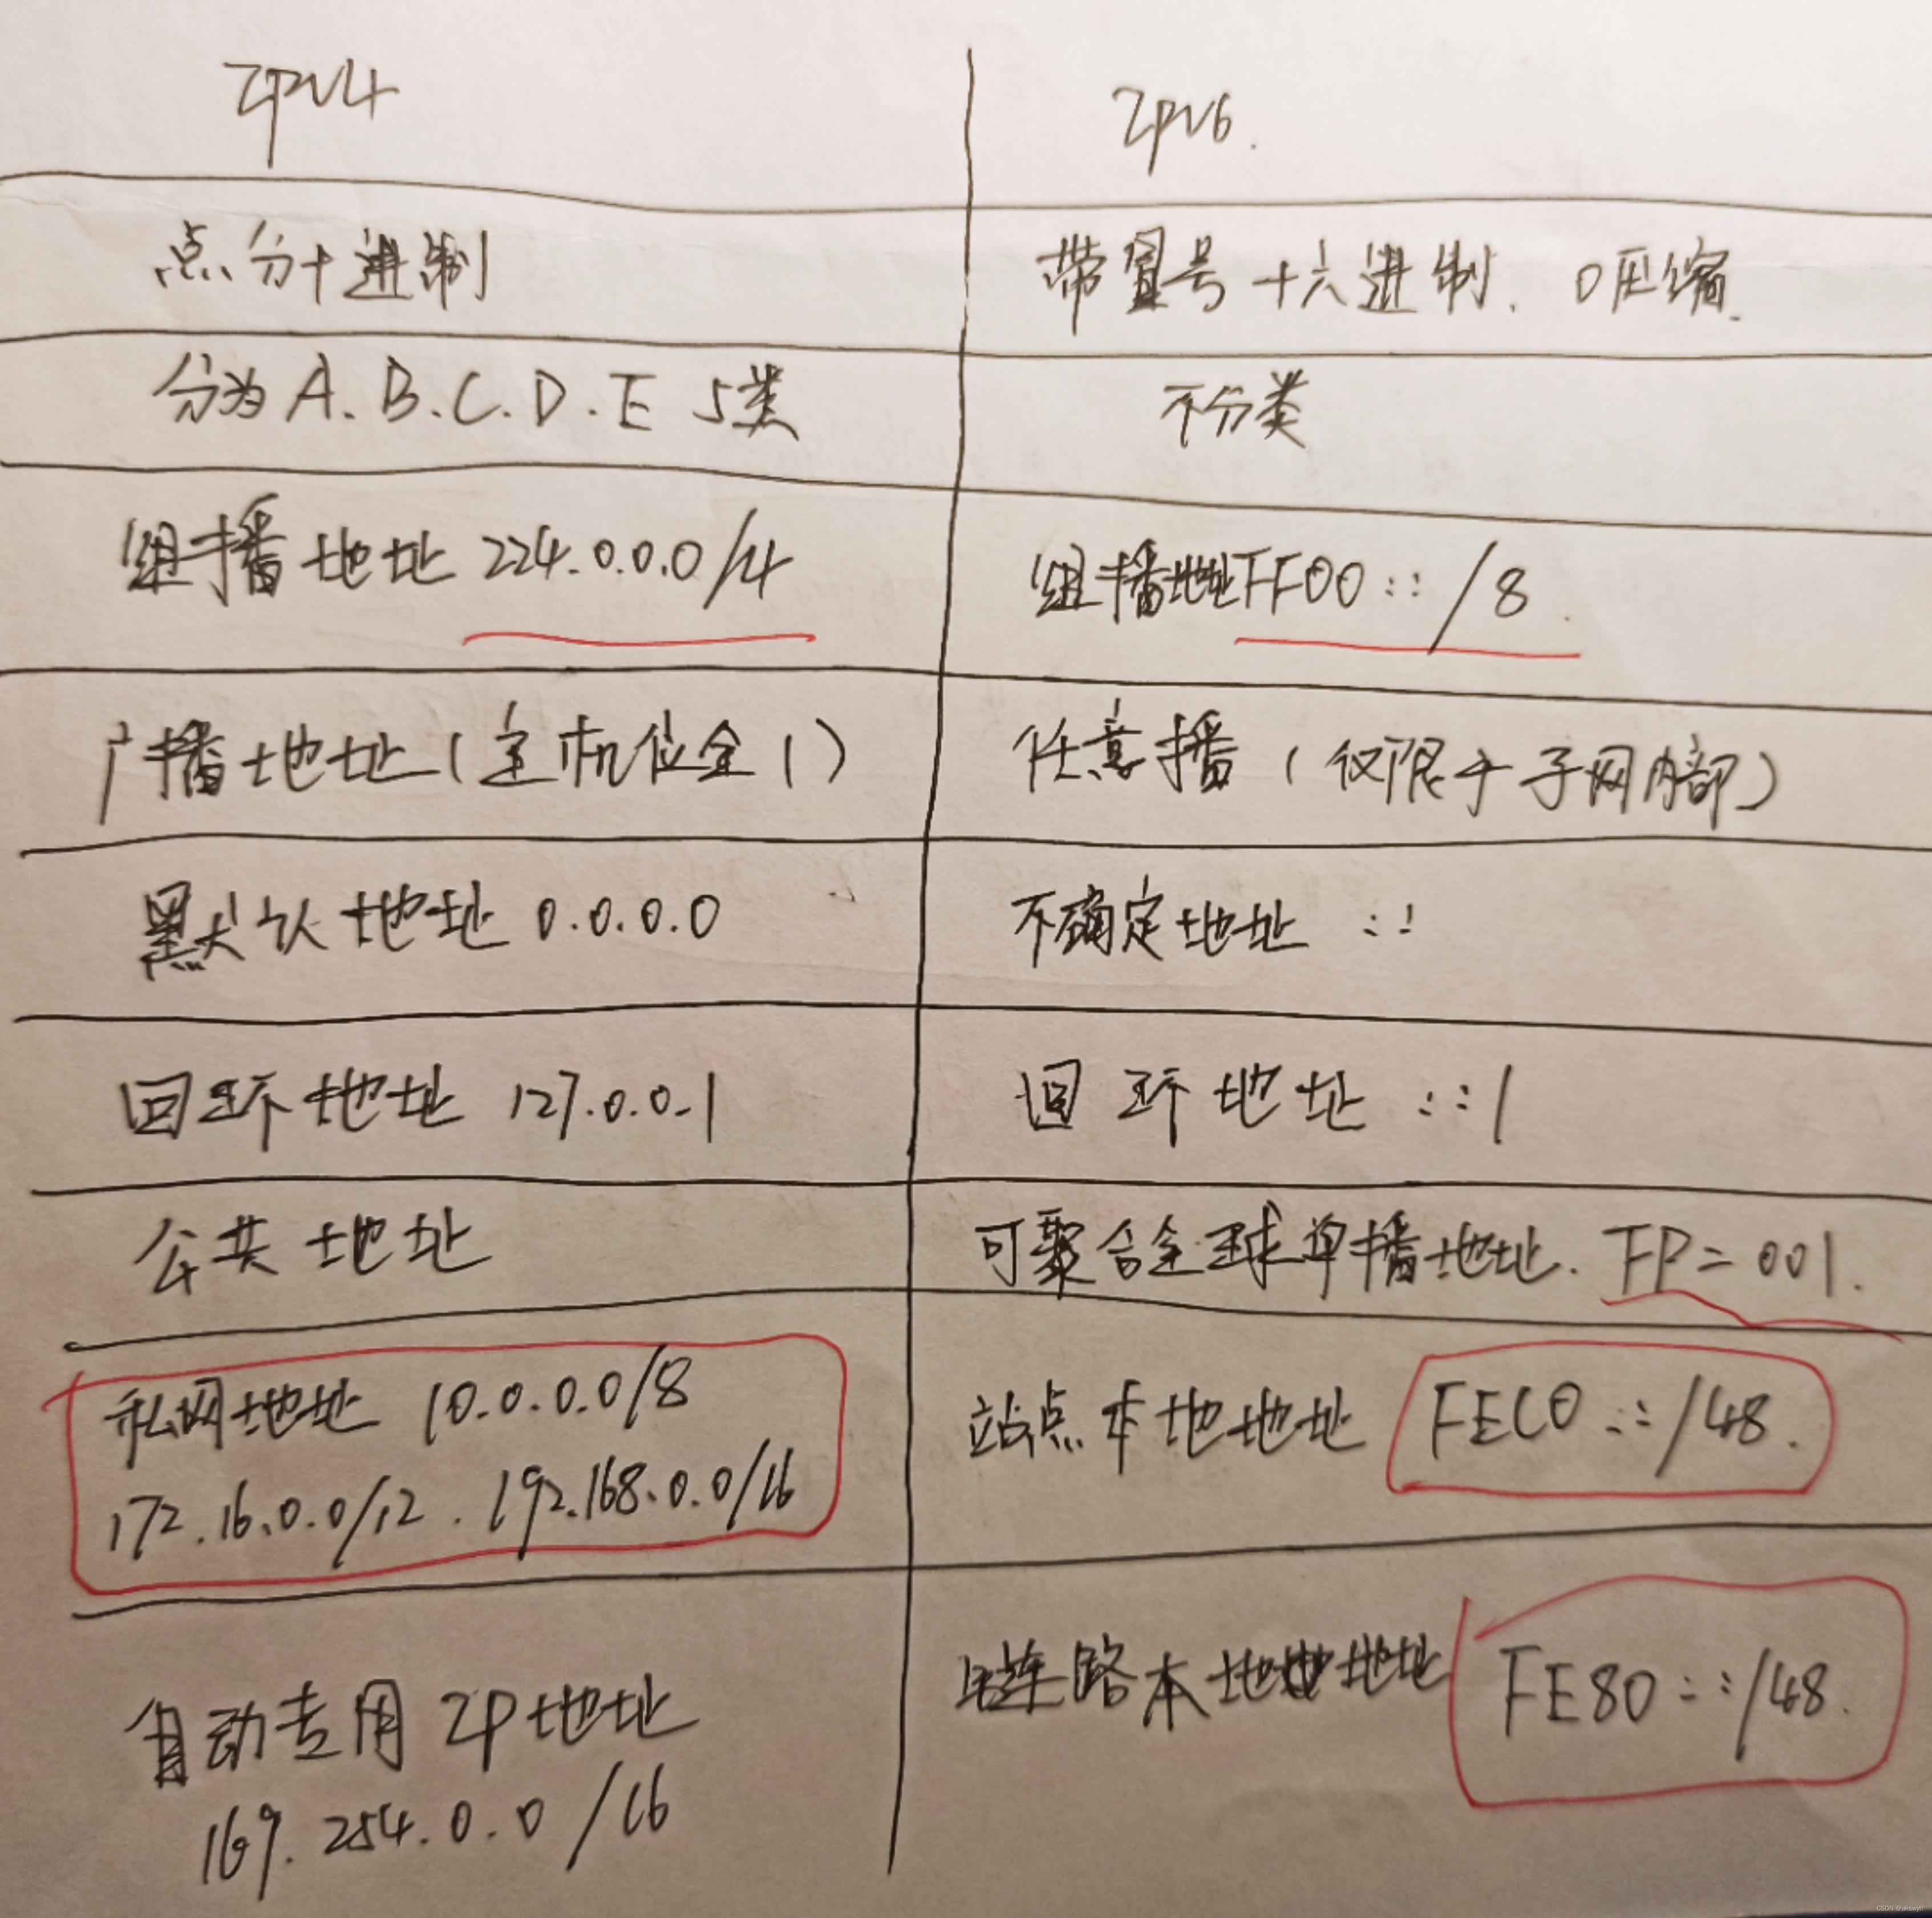 IPv4
IPv6.
点分十进制
带冒号十六进制. 0压缩.
分为A.B.C.D.E 5类
不分类
组播地址 224.0.0.0/4
组播地址FF00::/8.
广播地址(主机位全1)
任意播(仅限于子网内部)
默认地址 0.0.0.0
不确定地址 ::
回环地址 127.0.0.1
回环地址 ::1
公共地址
可聚合全球单播地址. FP=001.
私网地址 10.0.0.0/8
172.16.0.0/12. 192.168.0.0/16
站点本地地址 FEC0::/48.
自动专用IP地址
169.254.0.0/16
链路本地地址 FE80::/48.